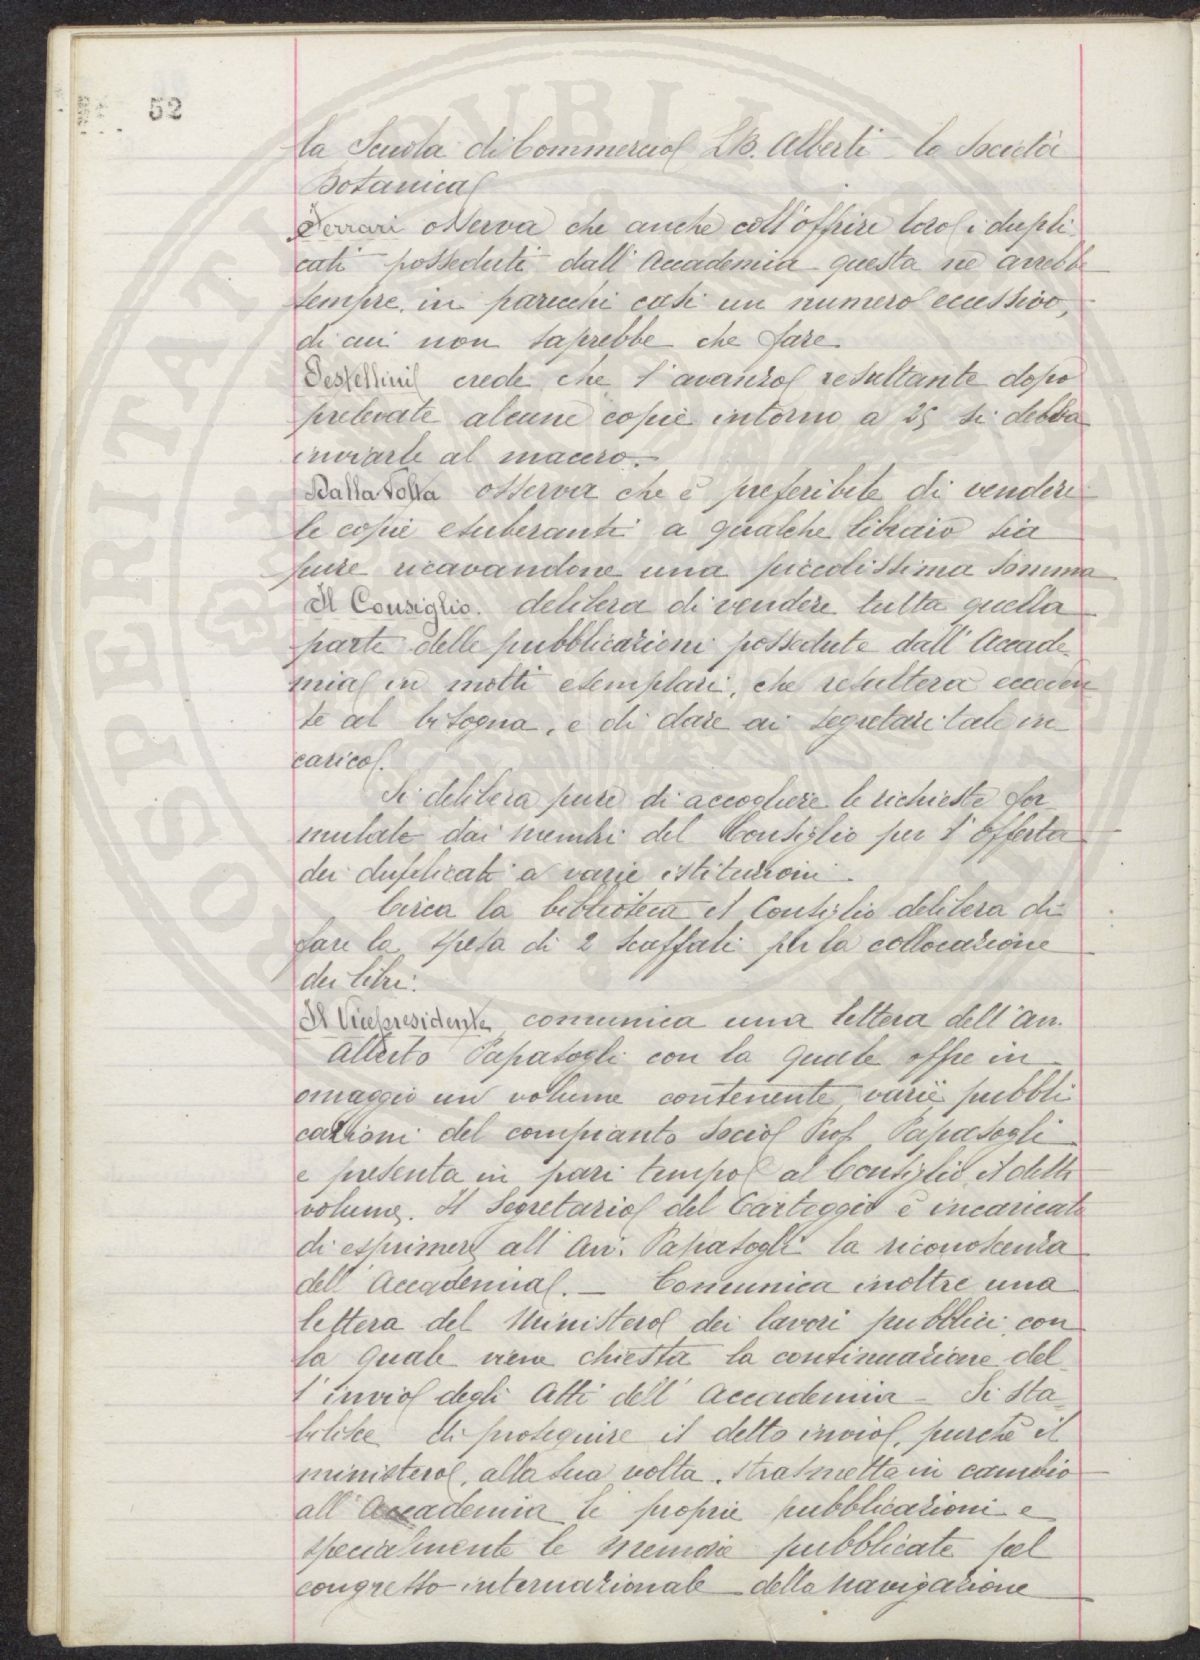 52
la Scuola di Commercio L.B. Alberti la Società
Botanica
Ferrari osserva che anche coll'offrire loro i dupli
cati posseduti dall'Accademia questa ne avrebbe
sempre in parecchi casi un numero eccessivo,
di cui non saprebbe che fare
Pestellini crede che l'avanzo resultante dopo
prelevate alcune copie intorno a 25 si debba
inviarle al macero.
Dalla Volta osserva che è preferibile di vendere
le copie esuberanti a qualche libraio sia
pure ricavandone una piccolissima somma
Il Consiglio. delibera di vendere tutta quella
parte delle pubblicazioni possedute dall'Accade-
mia in molti esemplari, che resulterà ecceden
te al bisogna, e di dare ai segretari tale in
carico.
Si delibera pure di accogliere le richieste for-
mulate dai membri del Consiglio per l'offerta
dei duplicati a varie istituzioni
Circa la biblioteca il Consiglio delibera di
fare la spesa di 2 scaffali per la collocazione
dei libri.
Il Vicepresidente comunica una lettera dell'Avv.
Alberto Papasogli con la quale offre in
omaggio un volume contenente varie pubbli
cazioni del compianto Socio Prof. Papasogli
e presenta in pari tempo al Consiglio il detto
volume. Il Segretario del Carteggio è incaricato
di esprimere all'Avv. Papasogli la riconoscenza
dell'Accademia. – Comunica inoltre una
lettera del Ministero dei lavori pubblici con
la quale viene chiesta la continuazione del-
l'invio degli Atti dell'Accademia – Si sta-
bilisce di proseguire il detto invio, purchè il
ministero, alla sua volta, trasmetta in cambio
all'Accademia le proprie pubblicazioni e
specialmente le memorie pubblicate pel
congresso internazionale della navigazione